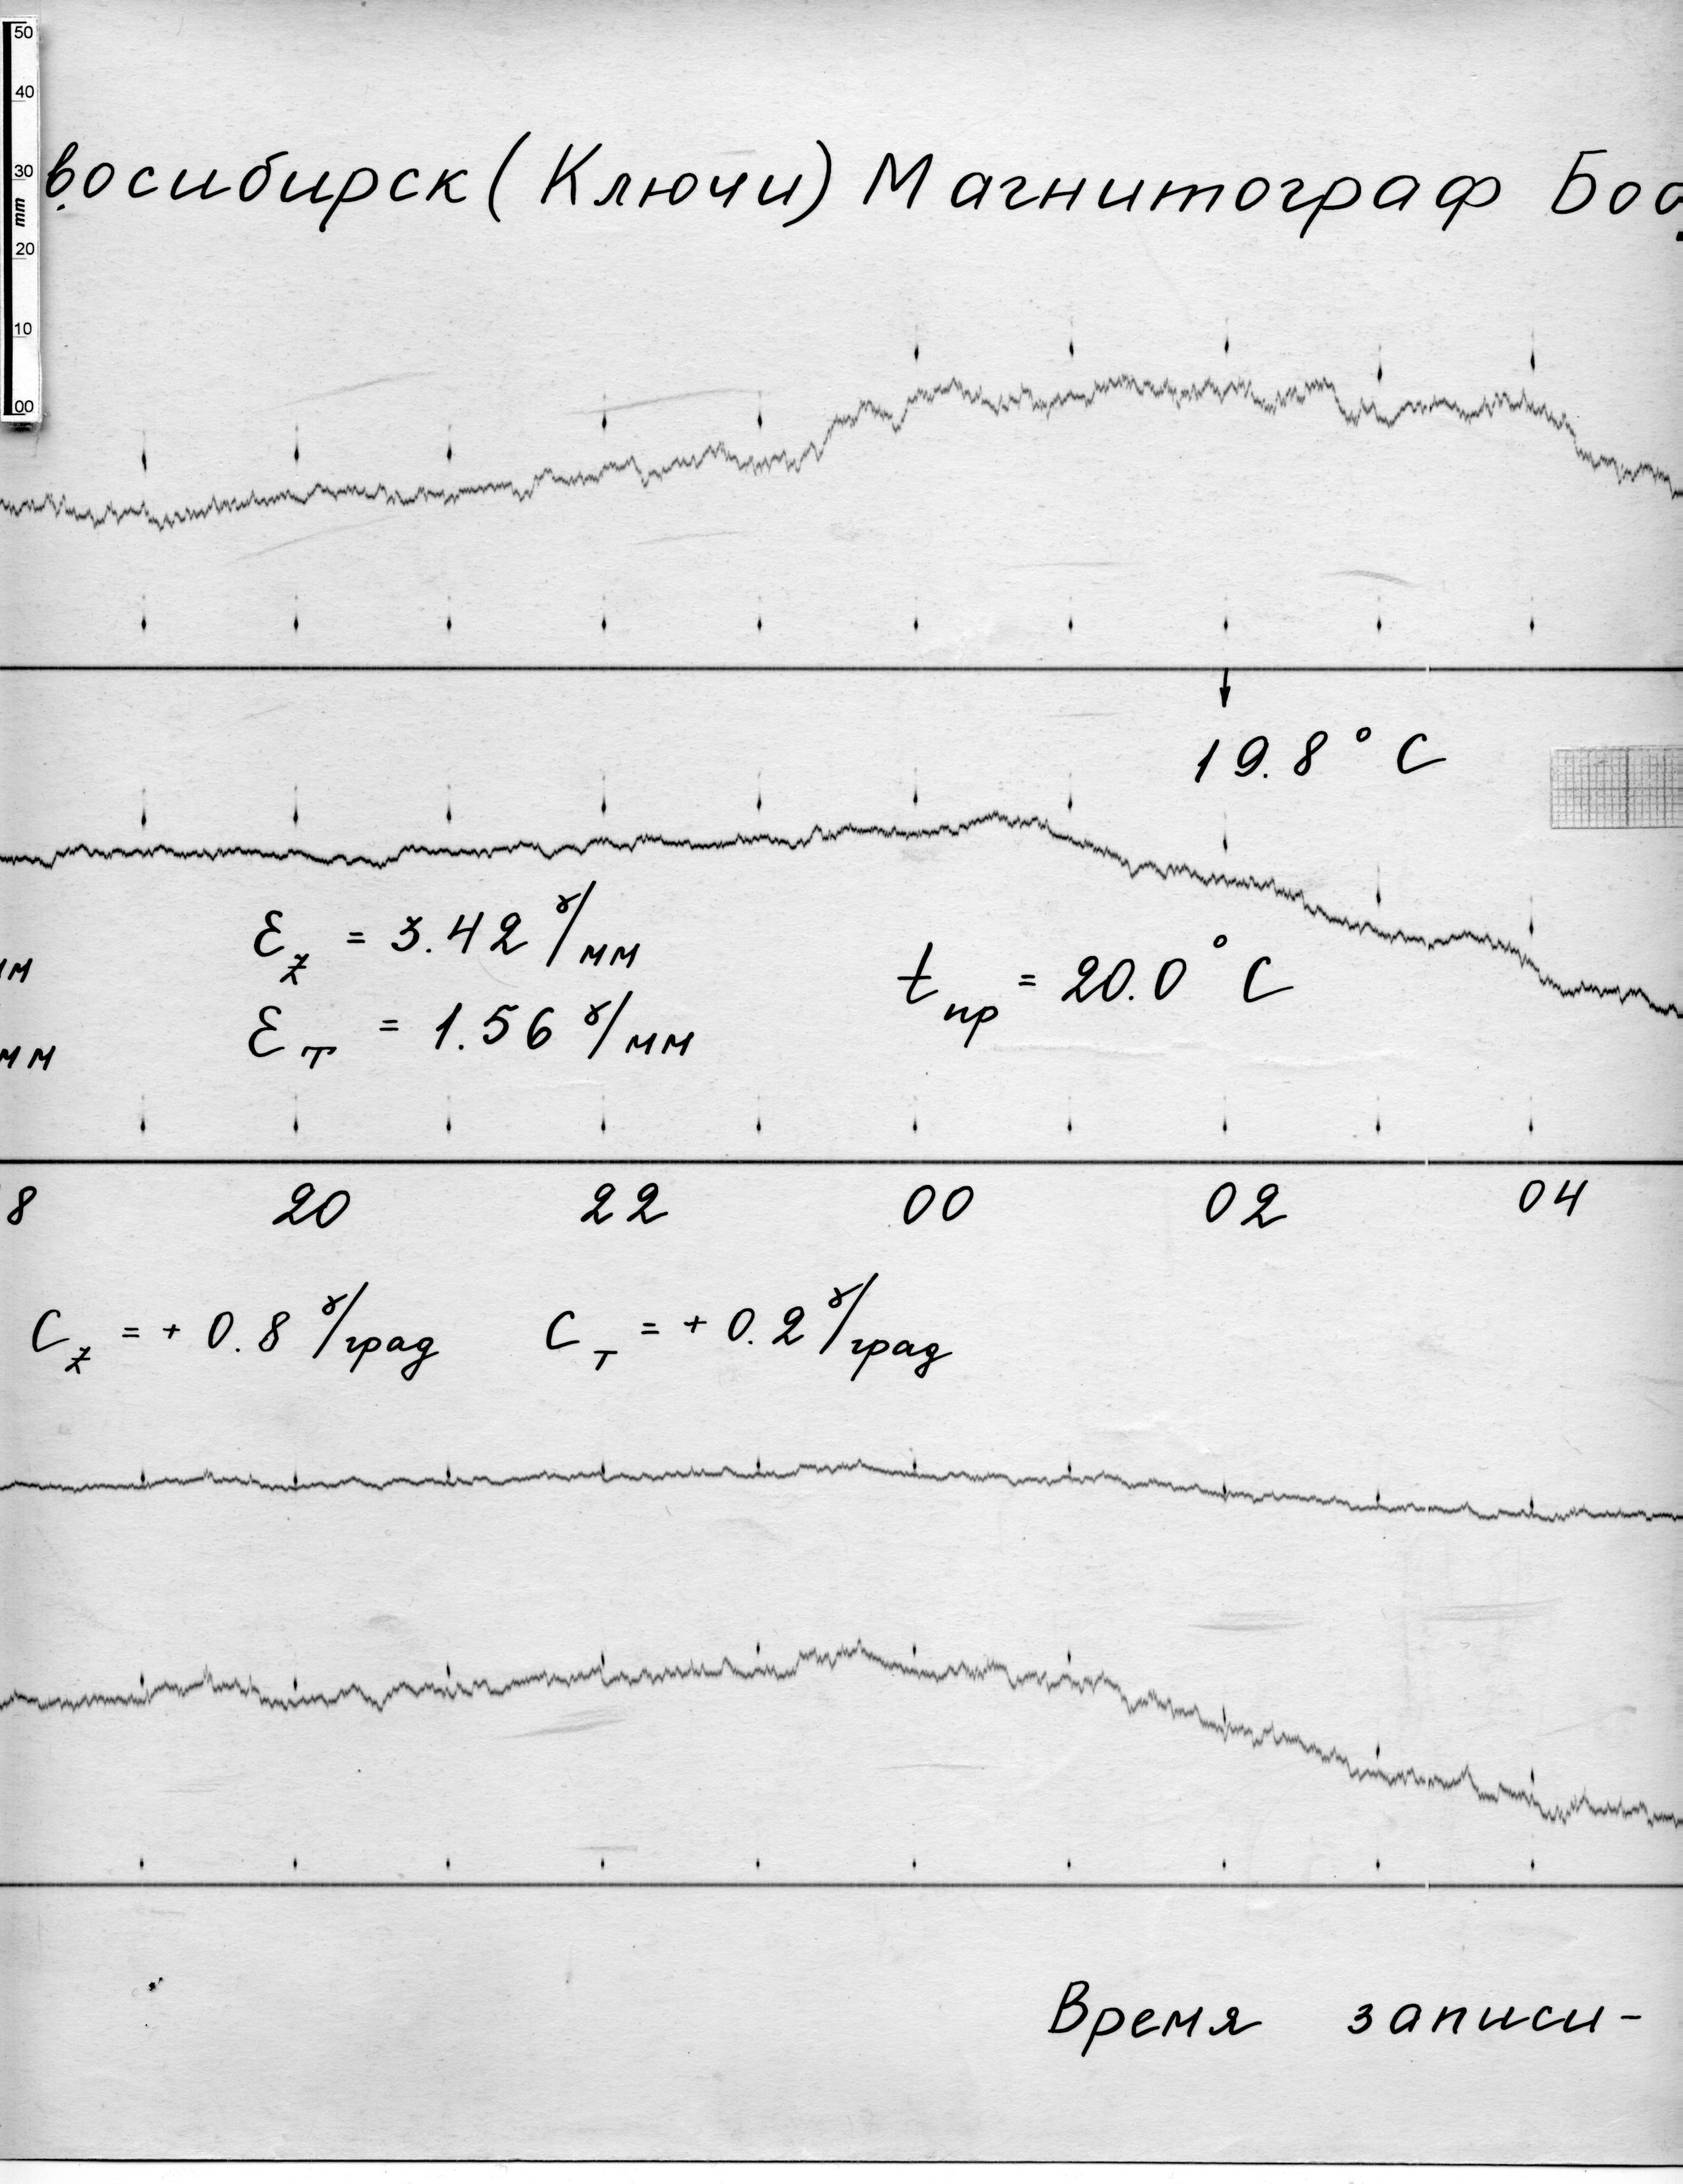 50
40
30
mm
20
10
00
восибирск (Ключи) Магнитограф Боб
19.8° С
мм
мм
ε_z = 3.42 γ/мм
ε_т = 1.56 γ/мм
t_пр = 20.0° С
8 20 22 00 02 04
C_z = + 0.8 γ/град C_т = + 0.2 γ/град
Время записи-